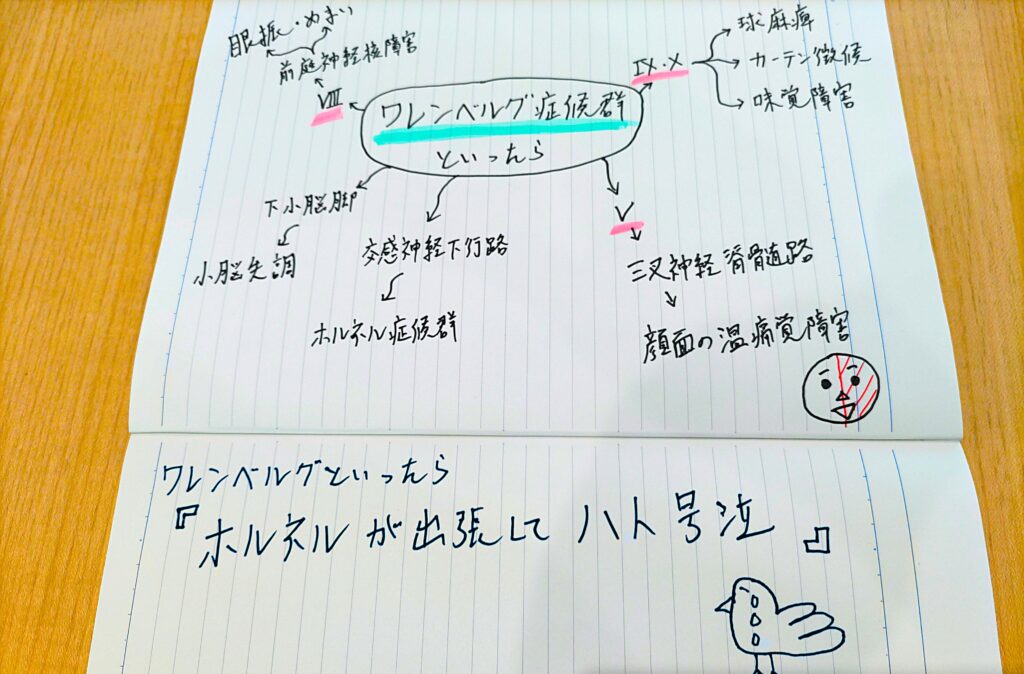 眼振・めまい
前庭神経核障害
VIII
ワレンベルグ症候群
といったら
IX・X
球麻痺
カーテン徴候
味覚障害
下小脳脚
小脳失調
交感神経下行路
ホルネル症候群
V
三叉神経脊髄路
顔面の温痛覚障害
ワレンベルグといったら
『ホルネルが出張してハト号泣』